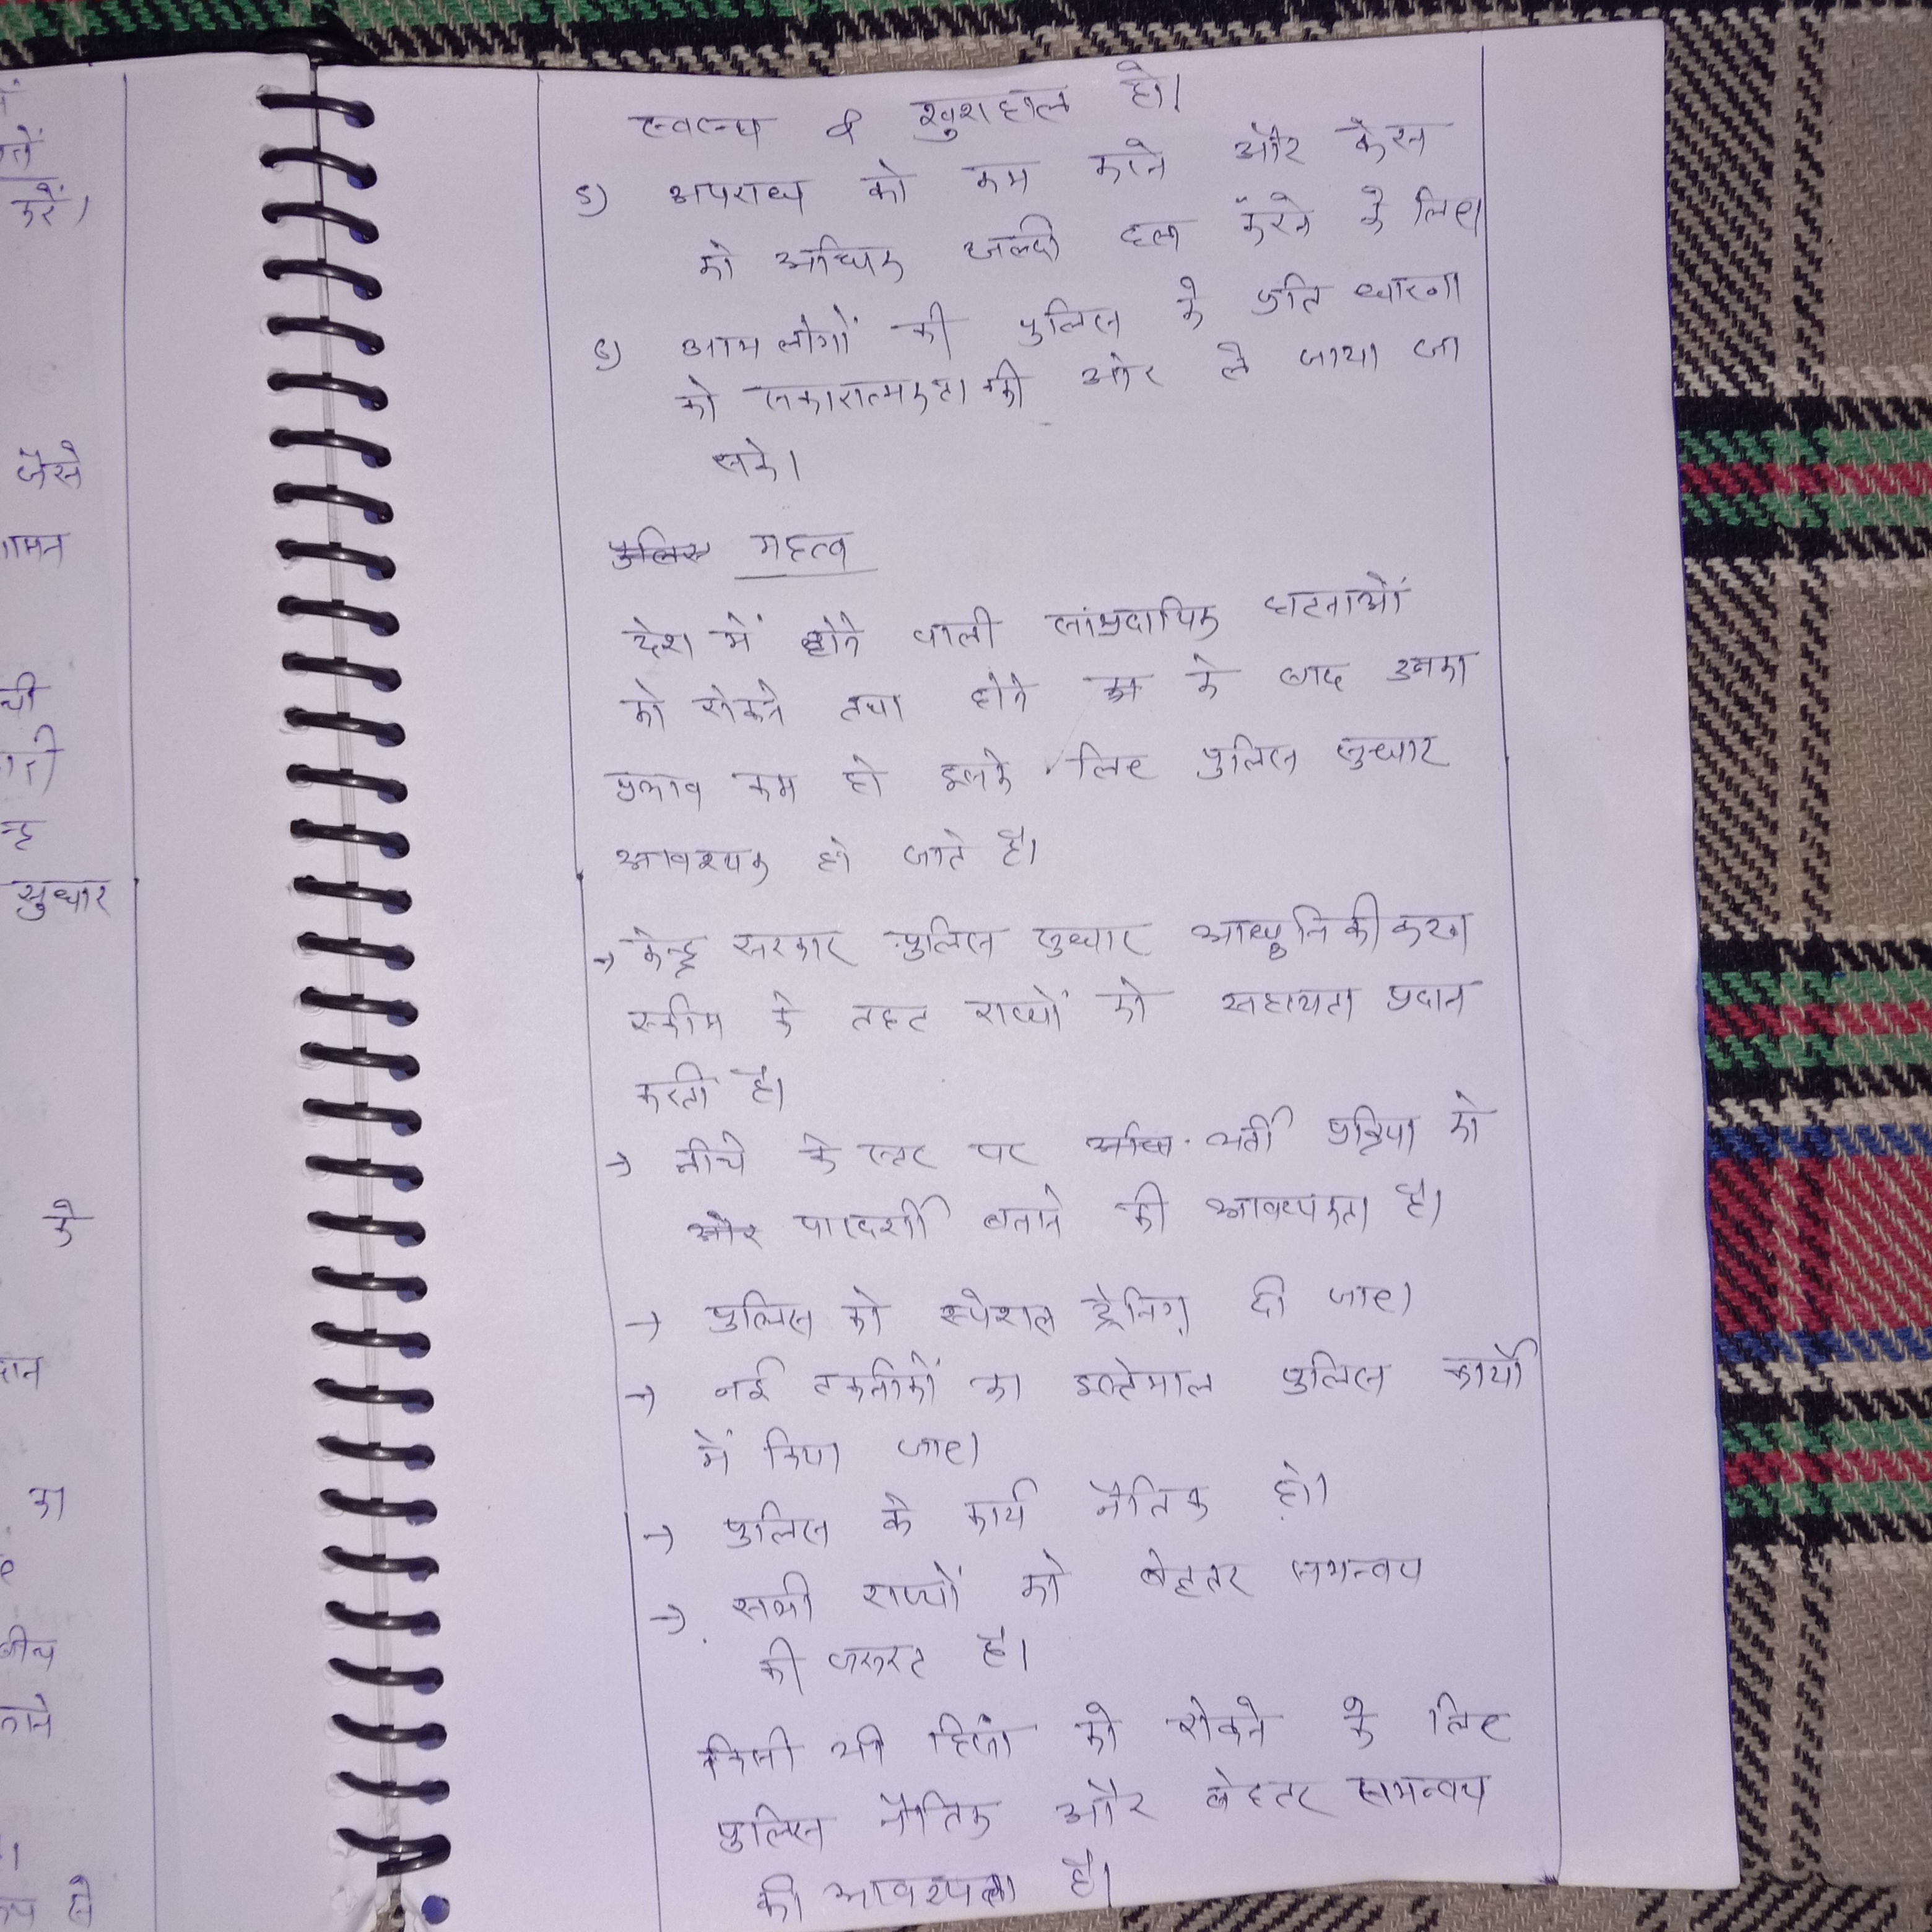 स्वस्थ & खुशहाल हो।
5) अपराध को कम करने और केस
को अधिक जल्दी हल करने के लिए।
6) आम लोगों की पुलिस के प्रति धारणा
को सकारात्मकता की ओर ले जाया जा
सके।
पुलिस महत्व
देश में होने वाली सांप्रदायिक घटनाओं
को रोकने तथा होने के बाद उनका
प्रभाव कम हो इसके लिए पुलिस सुधार
आवश्यक हो जाते है।
→ केन्द्र सरकार पुलिस सुधार आधुनिकीकरण
स्कीम के तहत राज्यों को सहायता प्रदान
करती है।
→ नीचे के स्तर पर भर्ती प्रक्रिया को
और पारदर्शी बनाने की आवश्यकता है।
→ पुलिस को स्पेशल ट्रेनिंग दी जाए।
→ नई तकनीकों का इस्तेमाल पुलिस कार्यो
में किया जाए।
→ पुलिस के कार्य नैतिक हो।
→ सभी राज्यों को बेहतर समन्वय
की जरूरत है।
किसी भी हिंसा को रोकने के लिए
पुलिस नैतिक और बेहतर समन्वय
की आवश्यकता है।
करें।
जैसे
सुधार
के
का